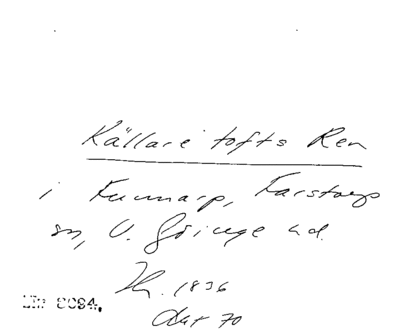 Källare tofts Ren
i Funnarp, Farstorps
sn, V. Göinge hd.
1836
Akt 70